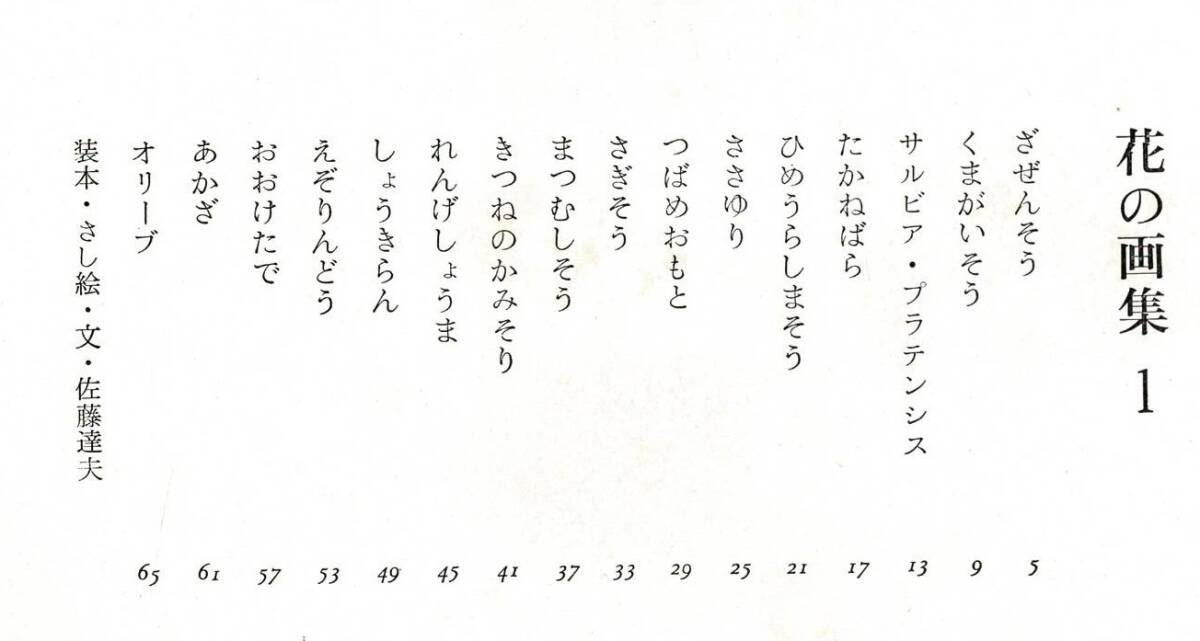 花の画集 1
ざぜんそう 5
くまがいそう 9
サルビア・プラテンシス 13
たかねばら 17
ひめうらしまそう 21
ささゆり 25
つばめおもと 29
さぎそう 33
まつむしそう 37
きつねのかみそり 41
れんげしょうま 45
しょうきらん 49
えぞりんどう 53
おおけたで 57
あかざ 61
オリーブ 65
装本・さし絵・文・佐藤達夫